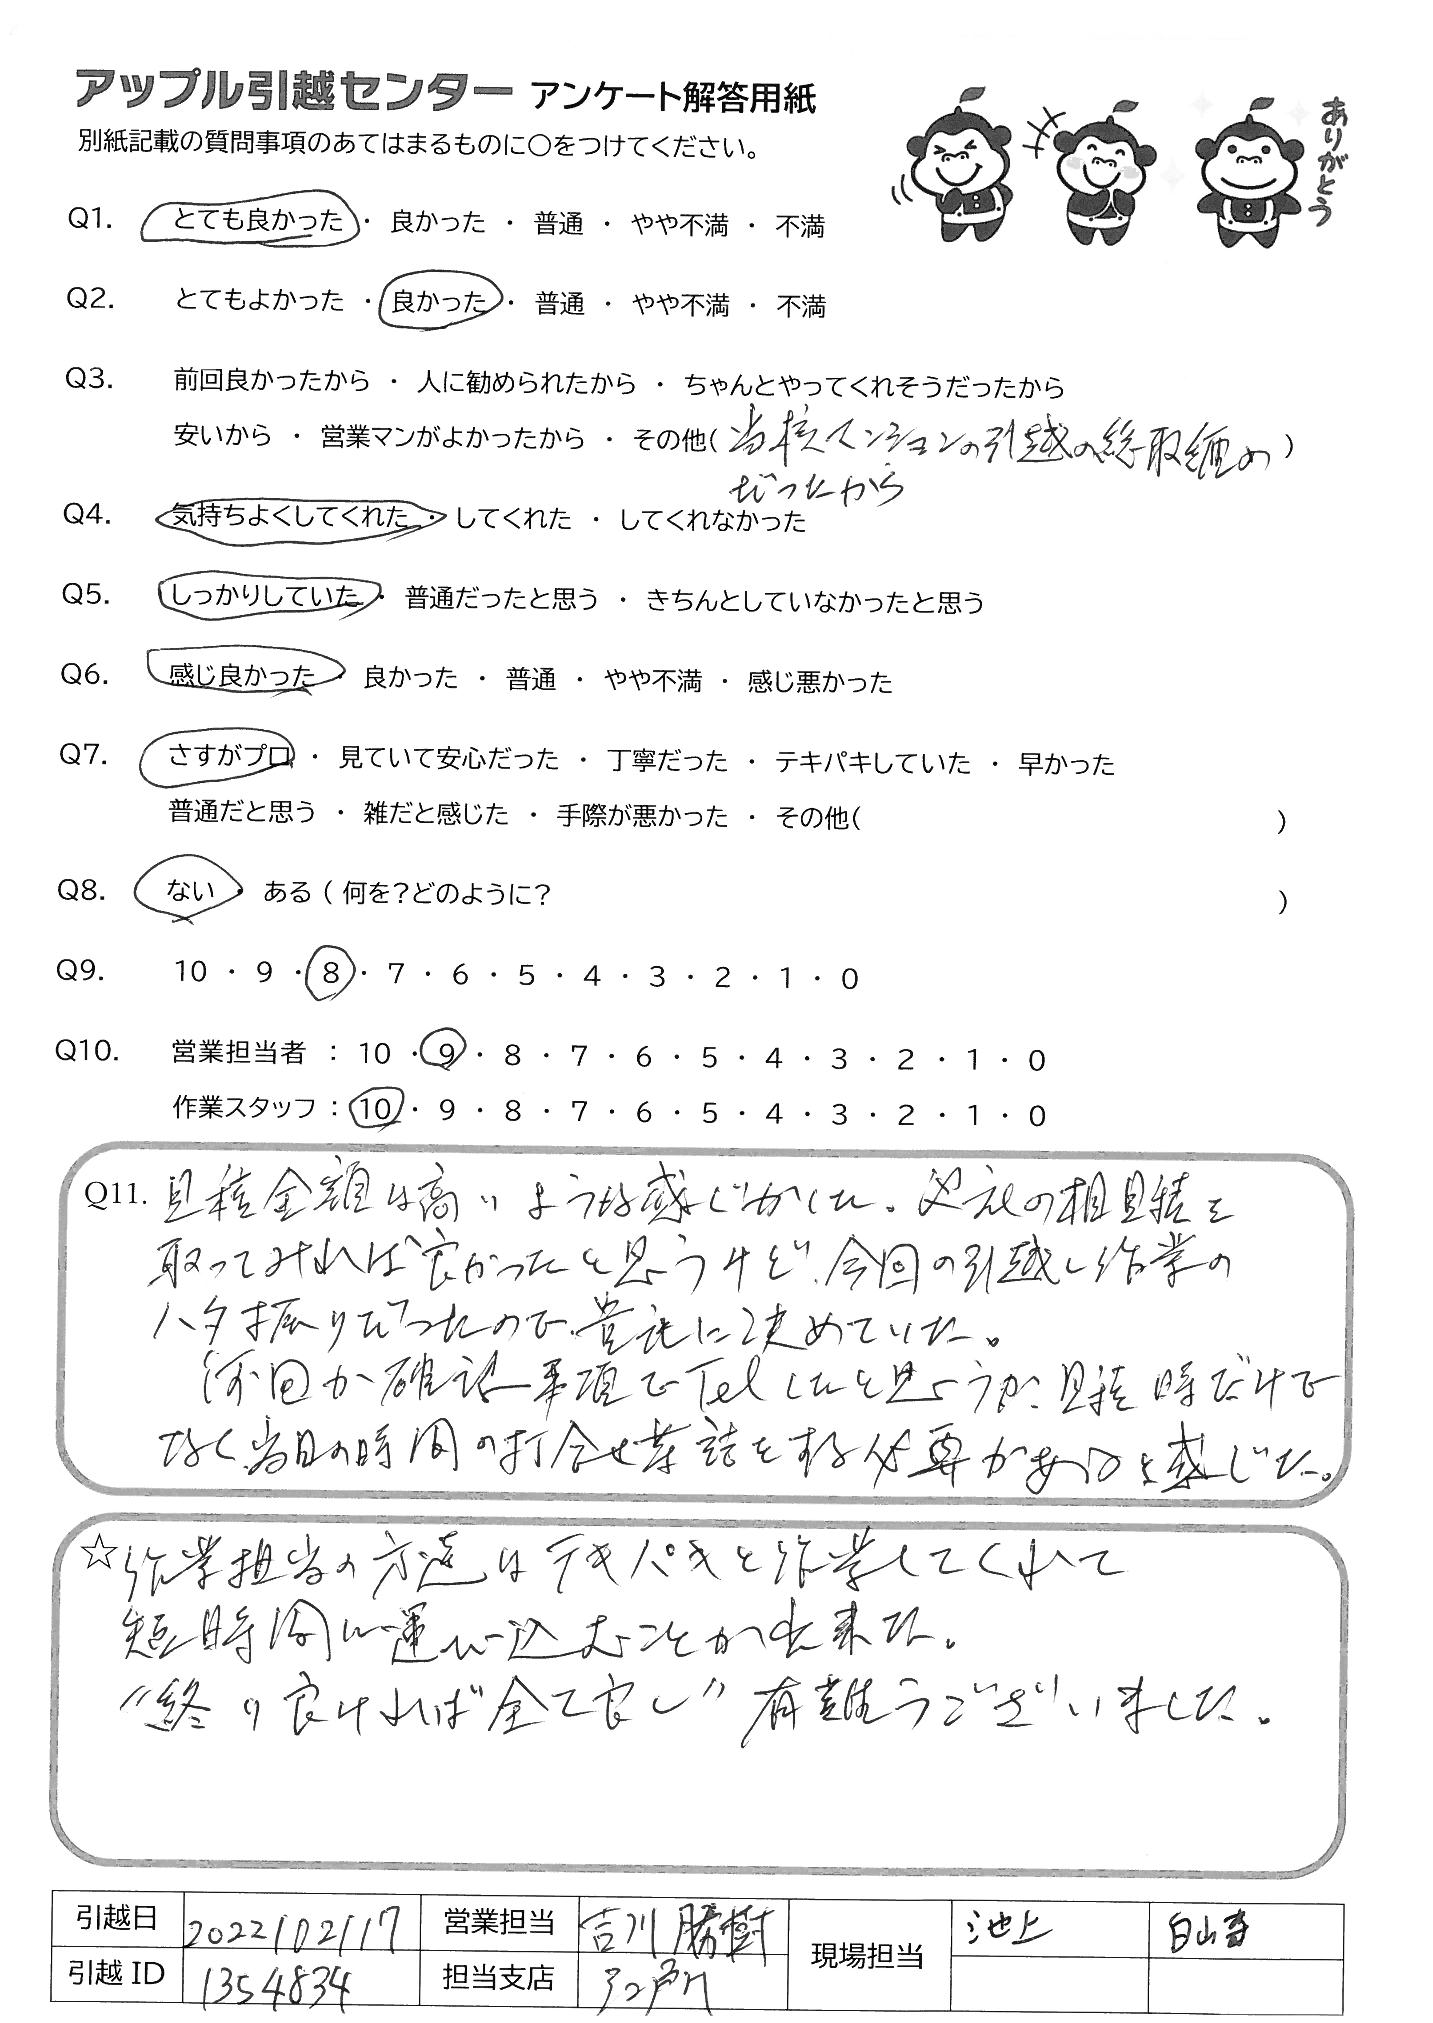 アップル引越センター アンケート解答用紙
別紙記載の質問事項のあてはまるものに〇をつけてください。
ありがとう
Q1. とても良かった ・ 良かった ・ 普通 ・ やや不満 ・ 不満
Q2. とてもよかった ・ 良かった ・ 普通 ・ やや不満 ・ 不満
Q3. 前回良かったから ・ 人に勧められたから ・ ちゃんとやってくれそうだったから
安いから ・ 営業マンがよかったから ・ その他( 当核マンションの引越の総取纏め )
だったから
Q4. 気持ちよくしてくれた ・ してくれた ・ してくれなかった
Q5. しっかりしていた ・ 普通だったと思う ・ きちんとしていなかったと思う
Q6. 感じ良かった ・ 良かった ・ 普通 ・ やや不満 ・ 感じ悪かった
Q7. さすがプロ ・ 見ていて安心だった ・ 丁寧だった ・ テキパキしていた ・ 早かった
普通だと思う ・ 雑だと感じた ・ 手際が悪かった ・ その他( )
Q8. ない ・ ある ( 何を?どのように? )
Q9. 10 ・ 9 ・ 8 ・ 7 ・ 6 ・ 5 ・ 4 ・ 3 ・ 2 ・ 1 ・ 0
Q10. 営業担当者 : 10 ・ 9 ・ 8 ・ 7 ・ 6 ・ 5 ・ 4 ・ 3 ・ 2 ・ 1 ・ 0
作業スタッフ : 10 ・ 9 ・ 8 ・ 7 ・ 6 ・ 5 ・ 4 ・ 3 ・ 2 ・ 1 ・ 0
Q11. 見積金額は高いような感じがした。他社の相見積を
取ってみれば良かったと思うけど、今回の引越し作業の
ハタ振りだったので、貴社に決めていた。
何回か確認事項でTelしたと思うが、見積時だけで
なく、当日の時間の打合せ等話をする必要があると感じた。
☆作業担当の方達はテキパキと作業してくれて
短時間に運び込むことが出来た。
“終り良ければ全て良し” 有難うございました。
引越日 2022/02/17 営業担当 吉川勝樹 現場担当 池上 白山
引越ID 1354834 担当支店 江戸川